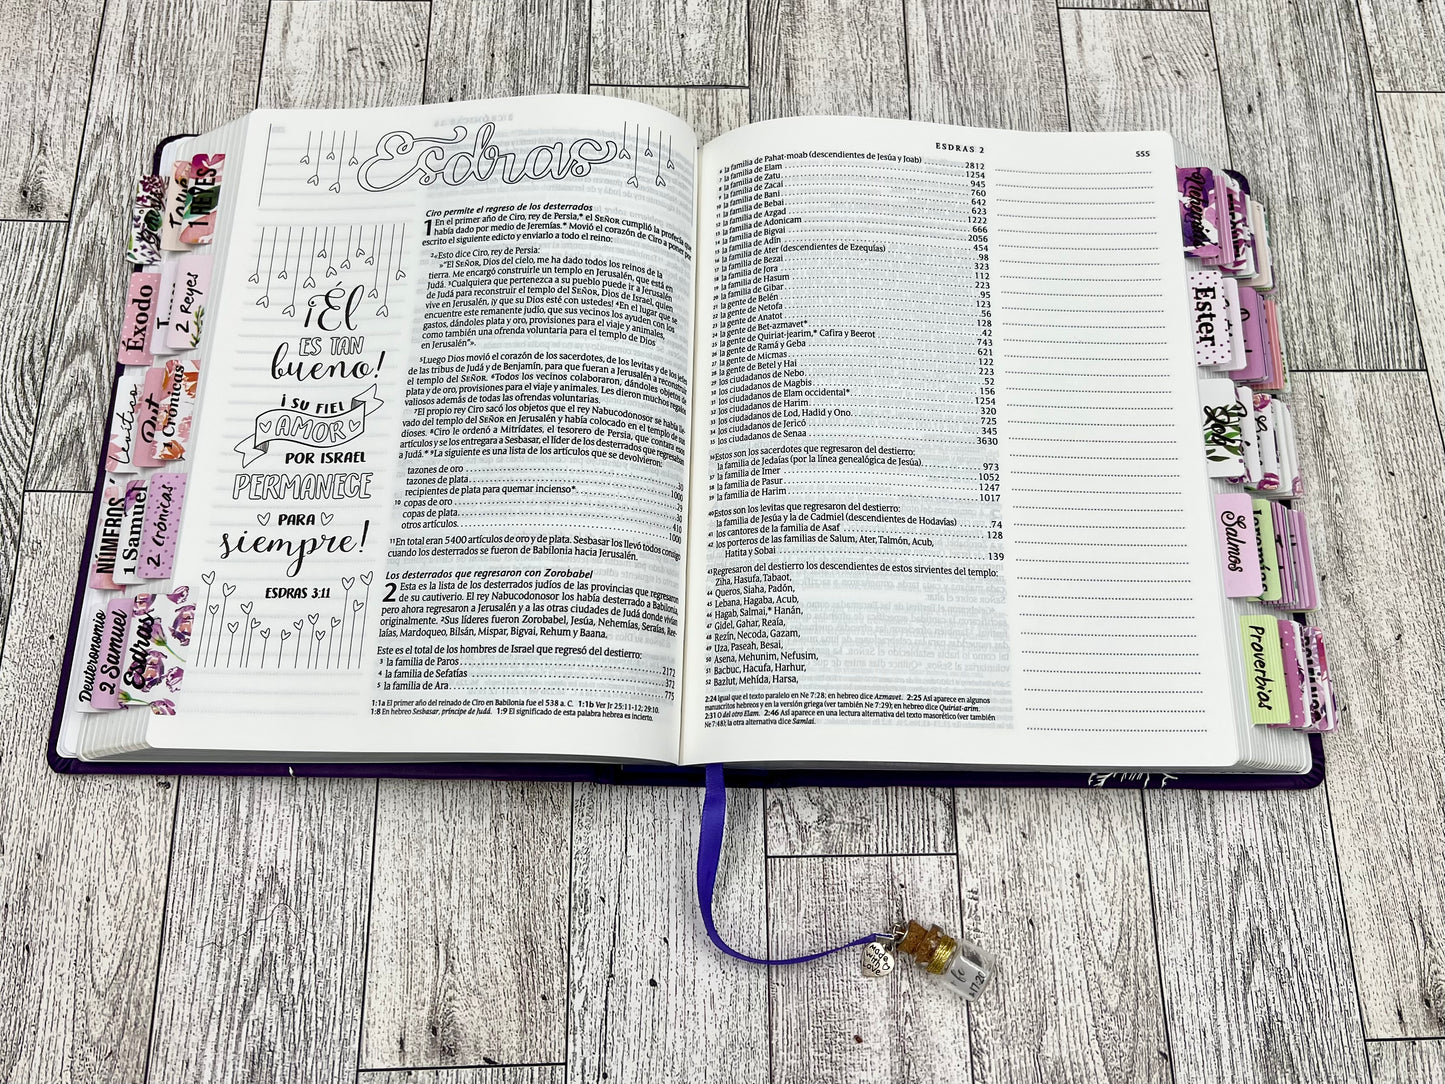 Esdras
¡Él
ES TAN
bueno!
¡SU FIEL
AMOR
POR ISRAEL
PERMANECE
PARA
siempre!
ESDRAS 3:11
Ciro permite el regreso de los desterrados
1 En el primer año de Ciro, rey de Persia,* el SEÑOR cumplió la profecía que
había dado por medio de Jeremías.* Movió el corazón de Ciro a poner por
escrito el siguiente edicto y enviarlo a todo el reino:
2 «Esto dice Ciro, rey de Persia:
»"El SEÑOR, Dios del cielo, me ha dado todos los reinos de la
tierra. Me encargó construirle un templo en Jerusalén, que está en
Judá. 3 Cualquiera que pertenezca a su pueblo puede ir a Jerusalén
de Judá para reconstruir el templo del SEÑOR, Dios de Israel, quien
vive en Jerusalén, ¡y que su Dios esté con ustedes! 4 En el lugar que se
encuentre este remanente judío, que sus vecinos los ayuden con los
gastos, dándoles plata y oro, provisiones para el viaje y animales,
como también una ofrenda voluntaria para el templo de Dios
en Jerusalén"».
5 Luego Dios movió el corazón de los sacerdotes, de los levitas y de los jefes
de las tribus de Judá y de Benjamín, para que fueran a Jerusalén a reconstruir
el templo del SEÑOR. 6 Todos los vecinos colaboraron, dándoles objetos de
plata y de oro, provisiones para el viaje y animales. Les dieron muchos regalos
valiosos además de todas las ofrendas voluntarias.
7 El propio rey Ciro sacó los objetos que el rey Nabucodonosor se había lle-
vado del templo del SEÑOR en Jerusalén y había colocado en el templo de sus
dioses. 8 Ciro le ordenó a Mitrídates, el tesorero de Persia, que contara esos
artículos y se los entregara a Sesbasar, el líder de los desterrados que regresaban
a Judá.* 9 La siguiente es una lista de los artículos que se devolvieron:
tazones de oro 30
tazones de plata 1000
recipientes de plata para quemar incienso* 29
10 copas de oro 30
copas de plata 410
otros artículos 1000
11 En total eran 5400 artículos de oro y de plata. Sesbasar los llevó todos consigo
cuando los desterrados se fueron de Babilonia hacia Jerusalén.
Los desterrados que regresaron con Zorobabel
2 Esta es la lista de los desterrados judíos de las provincias que regresaron
de su cautiverio. El rey Nabucodonosor los había desterrado a Babilonia,
pero ahora regresaron a Jerusalén y a las otras ciudades de Judá donde vivían
originalmente. 2 Sus líderes fueron Zorobabel, Jesúa, Nehemías, Seraías, Ree-
laías, Mardoqueo, Bilsán, Mispar, Bigvai, Rehum y Baana.
Este es el total de los hombres de Israel que regresó del destierro:
3 la familia de Paros 2172
4 la familia de Sefatías 372
5 la familia de Ara 775
1:1a El primer año del reinado de Ciro en Babilonia fue el 538 a. C. 1:1b Ver Jr 25:11-12; 29:10.
1:8 En hebreo Sesbasar, príncipe de Judá. 1:9 El significado de esta palabra hebrea es incierto.
ESDRAS 2
555
6 la familia de Pahat-moab (descendientes de Jesúa y Joab) 2812
7 la familia de Elam 1254
8 la familia de Zatu 945
9 la familia de Zacai 760
10 la familia de Bani 642
11 la familia de Bebai 623
12 la familia de Azgad 1222
13 la familia de Adonicam 666
14 la familia de Bigvai 2056
15 la familia de Adín 454
16 la familia de Ater (descendientes de Ezequías) 98
17 la familia de Bezai 323
18 la familia de Jora 112
19 la familia de Hasum 223
20 la familia de Gibar 95
21 la gente de Belén 123
22 la gente de Netofa 56
23 la gente de Anatot 128
24 la gente de Bet-azmavet* 42
25 la gente de Quiriat-jearim,* Cafira y Beerot 743
26 la gente de Ramá y Geba 621
27 la gente de Micmas 122
28 la gente de Betel y Hai 223
29 los ciudadanos de Nebo 52
30 los ciudadanos de Magbis 156
31 los ciudadanos de Elam occidental* 1254
32 los ciudadanos de Harim 320
33 los ciudadanos de Lod, Hadid y Ono 725
34 los ciudadanos de Jericó 345
35 los ciudadanos de Senaa 3630
36 Estos son los sacerdotes que regresaron del destierro:
la familia de Jedaías (por la línea genealógica de Jesúa) 973
37 la familia de Imer 1052
38 la familia de Pasur 1247
39 la familia de Harim 1017
40 Estos son los levitas que regresaron del destierro:
la familia de Jesúa y la de Cadmiel (descendientes de Hodavías) 74
41 los cantores de la familia de Asaf 128
42 los porteros de las familias de Salum, Ater, Talmón, Acub,
Hatita y Sobai 139
43 Regresaron del destierro los descendientes de estos sirvientes del templo:
Ziha, Hasufa, Tabaot,
44 Queros, Siaha, Padón,
45 Lebana, Hagaba, Acub,
46 Hagab, Salmai,* Hanán,
47 Gidel, Gahar, Reaía,
48 Rezín, Necoda, Gazam,
49 Uza, Paseah, Besai,
50 Asena, Mehunim, Nefusim,
51 Bacbuc, Hacufa, Harhur,
52 Bazlut, Mehída, Harsa,
2:24 Igual que el texto paralelo en Ne 7:28; en hebreo dice Azmavet. 2:25 Así aparece en algunos
manuscritos hebreos y en la versión griega (ver también Ne 7:29); en hebreo dice Quiriat-arim.
2:31 O del otro Elam. 2:46 Así aparece en una lectura alternativa del texto masorético (ver también
Ne 7:48); la otra alternativa dice Samlai.
1 REYES
Éxodo
2 Reyes
Levítico
Rut
1 Crónicas
NÚMEROS
1 Samuel
2 Crónicas
Deuteronomio
2 Samuel
Esdras
Nehemías
Ester
Job
Salmos
Proverbios
Made
with
Love